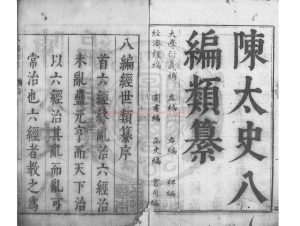 陳太史八
編類纂
大學衍義補 左編 右編 稗編
經濟類編 圖書編 函史編 實用編
八編經世類纂序
首六經経亂六經治
未亂靈元亨而天下治
以六經治其亂而亂可
常治也六經者教之爲